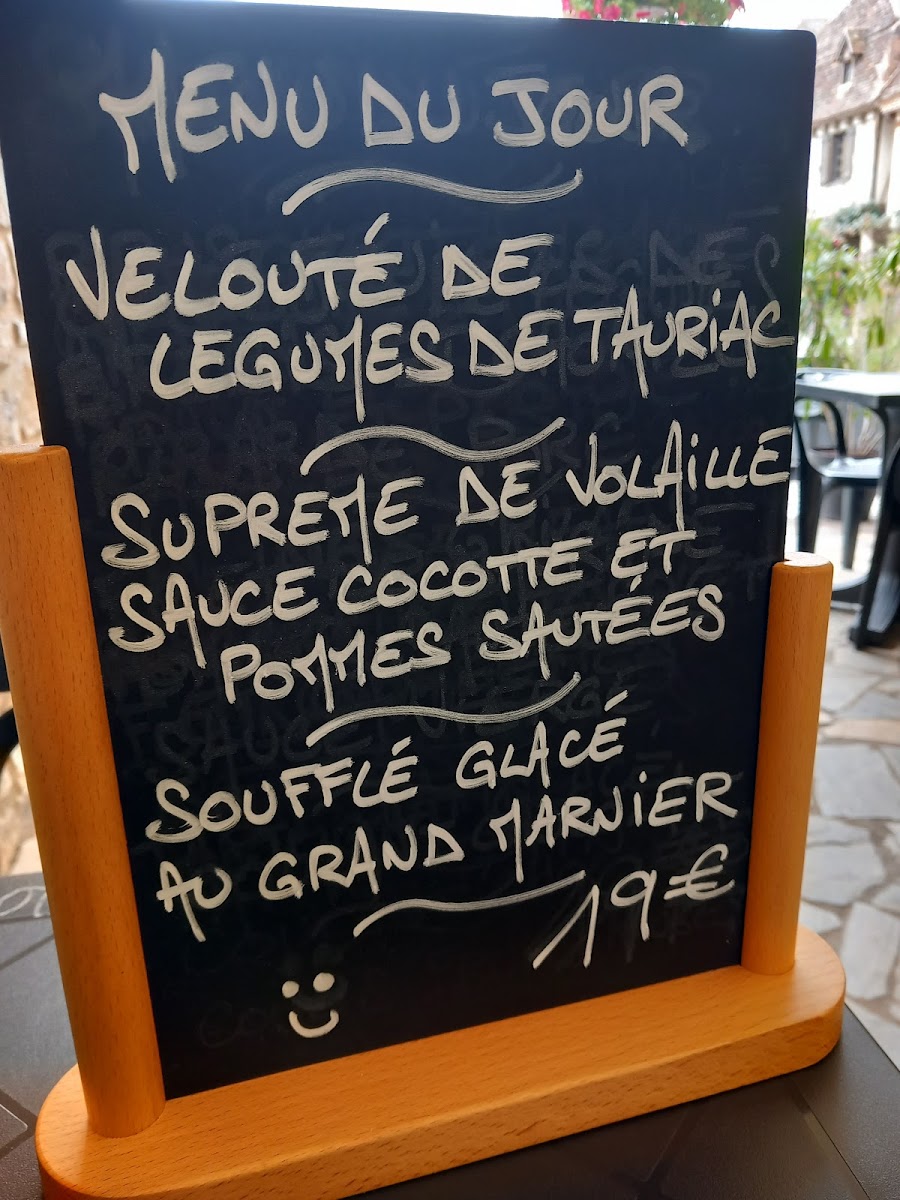 MENU DU JOUR
VELOUTÉ DE
LEGUMES DE TAURIAC
SUPREME DE VOLAILLE
SAUCE COCOTTE ET
POMMES SAUTÉES
SOUFFLÉ GLACÉ
AU GRAND MARNIER
19€